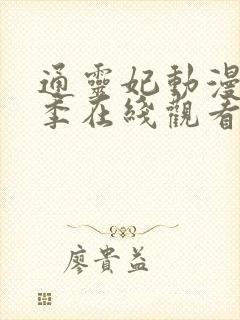 通靈妃動漫
季在綫觀看
廖貴益